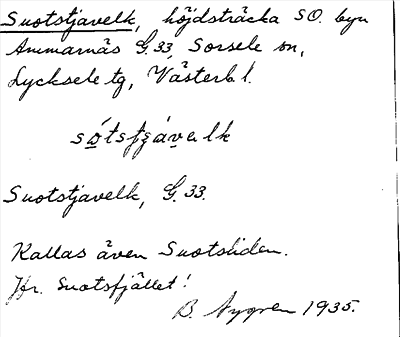 Suotstjavelk, höjdsträcka SO. byn
Ammarnäs G.33, Sorsele sn,
Lycksele tg, Västerb l.
Suotstjavelk, G.33.
Kallas även Suotsliden.
Jfr. Suotsfjället!
B. Nygren 1935.